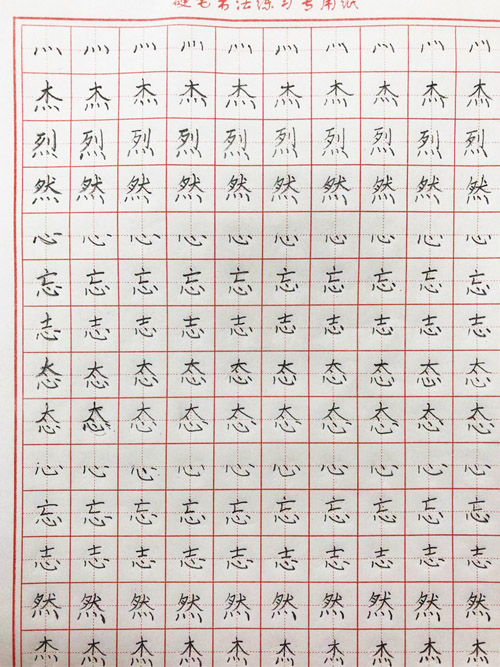 硬笔书法练习专用纸
灬灬灬灬灬灬灬灬灬灬
杰杰杰杰杰杰杰杰杰杰
烈烈烈烈烈烈烈烈烈烈
然然然然然然然然然然
心心心心心心心心心心
忘忘忘忘忘忘忘忘忘忘
志志志志志志志志志志
态态态态态态态态态态
态态态态态态态态态态
心心心心心心心心心心
忘忘忘忘忘忘忘忘忘忘
志志志志志志志志志志
然然然然然然然然然然
杰杰杰杰杰杰杰杰杰杰